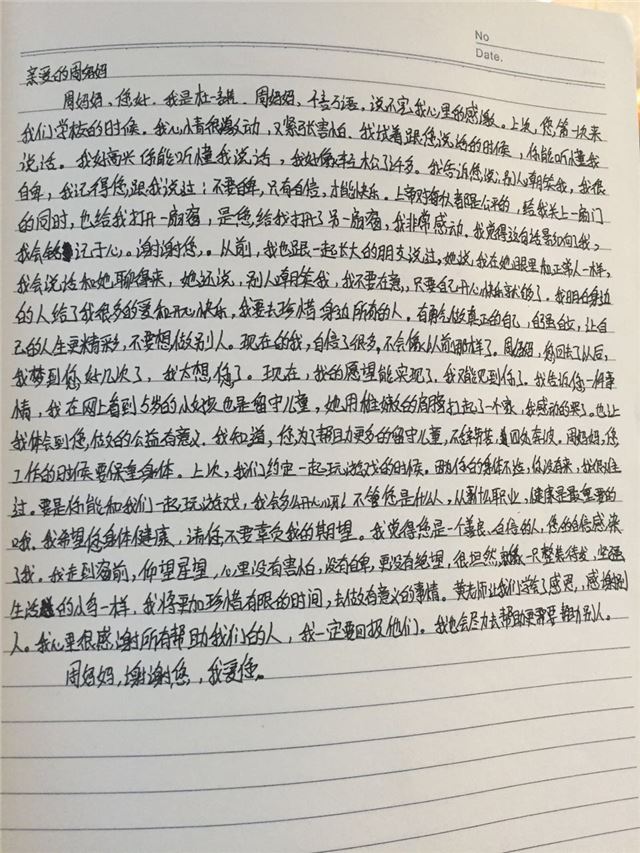 No
Date.
亲爱的周妈妈
周妈妈、您好。我是杜。周妈妈、不言语，说不完我心里的感激。上次，您第一次来
我们学校的时候。我心情很激动，又紧张害怕。我试着跟您说话的时候，你能听懂我
说话。我好高兴你能听懂我说话，我好像轻松了许多。我告诉您说：别人嘲笑我，我很
自卑，我记得您跟我说过：不要自卑，只有自信，才能快乐。上帝对每个人都是公平的，给我关上一扇门
的同时，也给我打开一扇窗，是您给我打开了另一扇窗，我非常感动。我觉得这句话影响了我，
我会记于心。谢谢您。从前，我也跟一起长大的朋友说过，她说，我在她眼里和正常人一样，
我会说话和她聊得来，她还说，别人嘲笑我，我不要在意，只要自己开心快乐就够了。我明白身边
的人给了我很多的爱和开心快乐，我要去珍惜身边所有的人。有勇气做真正的自己，自强自立，让自
己的人生更精彩，不要想做别人。现在的我，自信了很多，不会像从前那样了。周妈妈，您回去了以后，
我梦到您好几次了，我太想您了。现在，我的愿望能实现了，我又能见到你了。我告诉您一件事
情，我在网上看到5岁的小女孩也是留守儿童，她用稚嫩的肩膀扛起了一个家，我感动的哭了。也让
我体会到您做的公益有意义。我知道，您为了帮助更多的留守儿童，不辞劳苦、四处奔波。周妈妈，您
工作的时候要保重身体。上次，我们约定一起玩游戏的时候。因你的身体不适，你没有来，我很难
过。要是你能和我们一起玩游戏，我会多么开心啊！不管您是什么人，从事什么职业，健康是最重要的
哦。我希望您身体健康，请你不要辜负我的期望。我觉得您是一个善良、自信的人，您的自信感染
了我。我走到窗前，仰望星望，心里没有害怕，没有自卑，更没有绝望，很坦然，一只整装待发，坚强
生活的小鸟一样。我将更加珍惜有限的时间，去做有意义的事情。黄老师让我们学会了感恩，感谢别
人。我心里很感谢所有帮助我们的人，我一定要回报他们。我也会尽力去帮助更需要帮助别人。
周妈妈，谢谢您，我爱您。